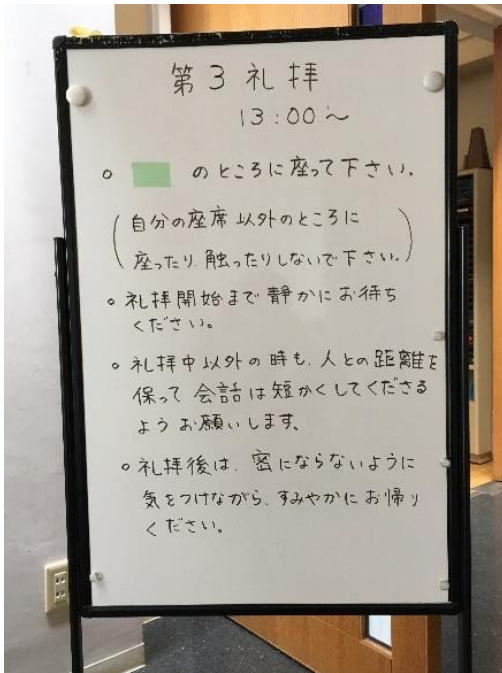 第3礼拝
13:00〜
○ のところに座って下さい。
(自分の座席以外のところに
座ったり、触ったりしないで下さい。)
○ 礼拝開始まで静かにお待ち
ください。
○ 礼拝中以外の時も、人との距離を
保って会話は短かくしてくださる
ようお願いします。
○ 礼拝後は、密にならないように
気をつけながら、すみやかにお帰り
ください。